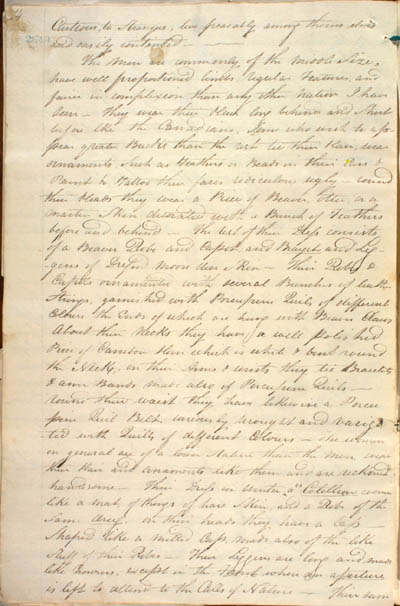 Curtious to Strangers, live peaceably among themselves
and easily contented —
The Men are commonly of the Middle Size,
have well proportioned limbs regular Features, and
fairer in complexion than any other nation I have
seen — they wear their black long behind and Short
before like the Canadians, Some who wish to ap-
pear greater Bucks than the rest tie their Hair, wear
ornaments Such as Feathers or Beads in their Ears &
Paint or Tattoo their faces rediculous ugly — round
their Heads they wear a Piece of Beaver, Otter or a
Marten Skin decorated with a Bunch of Feathers
before and behind — The rest of their Dress consists
of a Beaver Robe and Capot and Brayet and Leg-
gens of Dress'd Moose deer Skin — Their Robes &
Capotes ornamented with several Bunches of leather
Strings, garnished with Porcupine Quils of different
Colours the Ends of which are hung with Beavers Claws
About their Necks they have a well Polished
Piece of Carribou Horn which is white & bent round
the Neck, on their Arms & wrists they tie Bracelets
& arm Bands made also of Porcupine Quils —
round their waist they have likewise a Porcu
pine Quil Belt curiously wrought and variga
ted with Quills of different Colours — The women
in general are of a lower Stature than the men, wear
their Hair and ornaments like them and are reckoned
handsome — Their Dress in winter a Cotillion
like a mat, of thongs of hare Skin, and a Robe of the
Same Array. on their heads they have a Cap
Shaped like a Milled Cap, made also of the like
Stuff of their Robes — Their Leggins are long and made
like Trowsers, except in the Front where an aperture
is left to attend to the Calls of Nature — Their